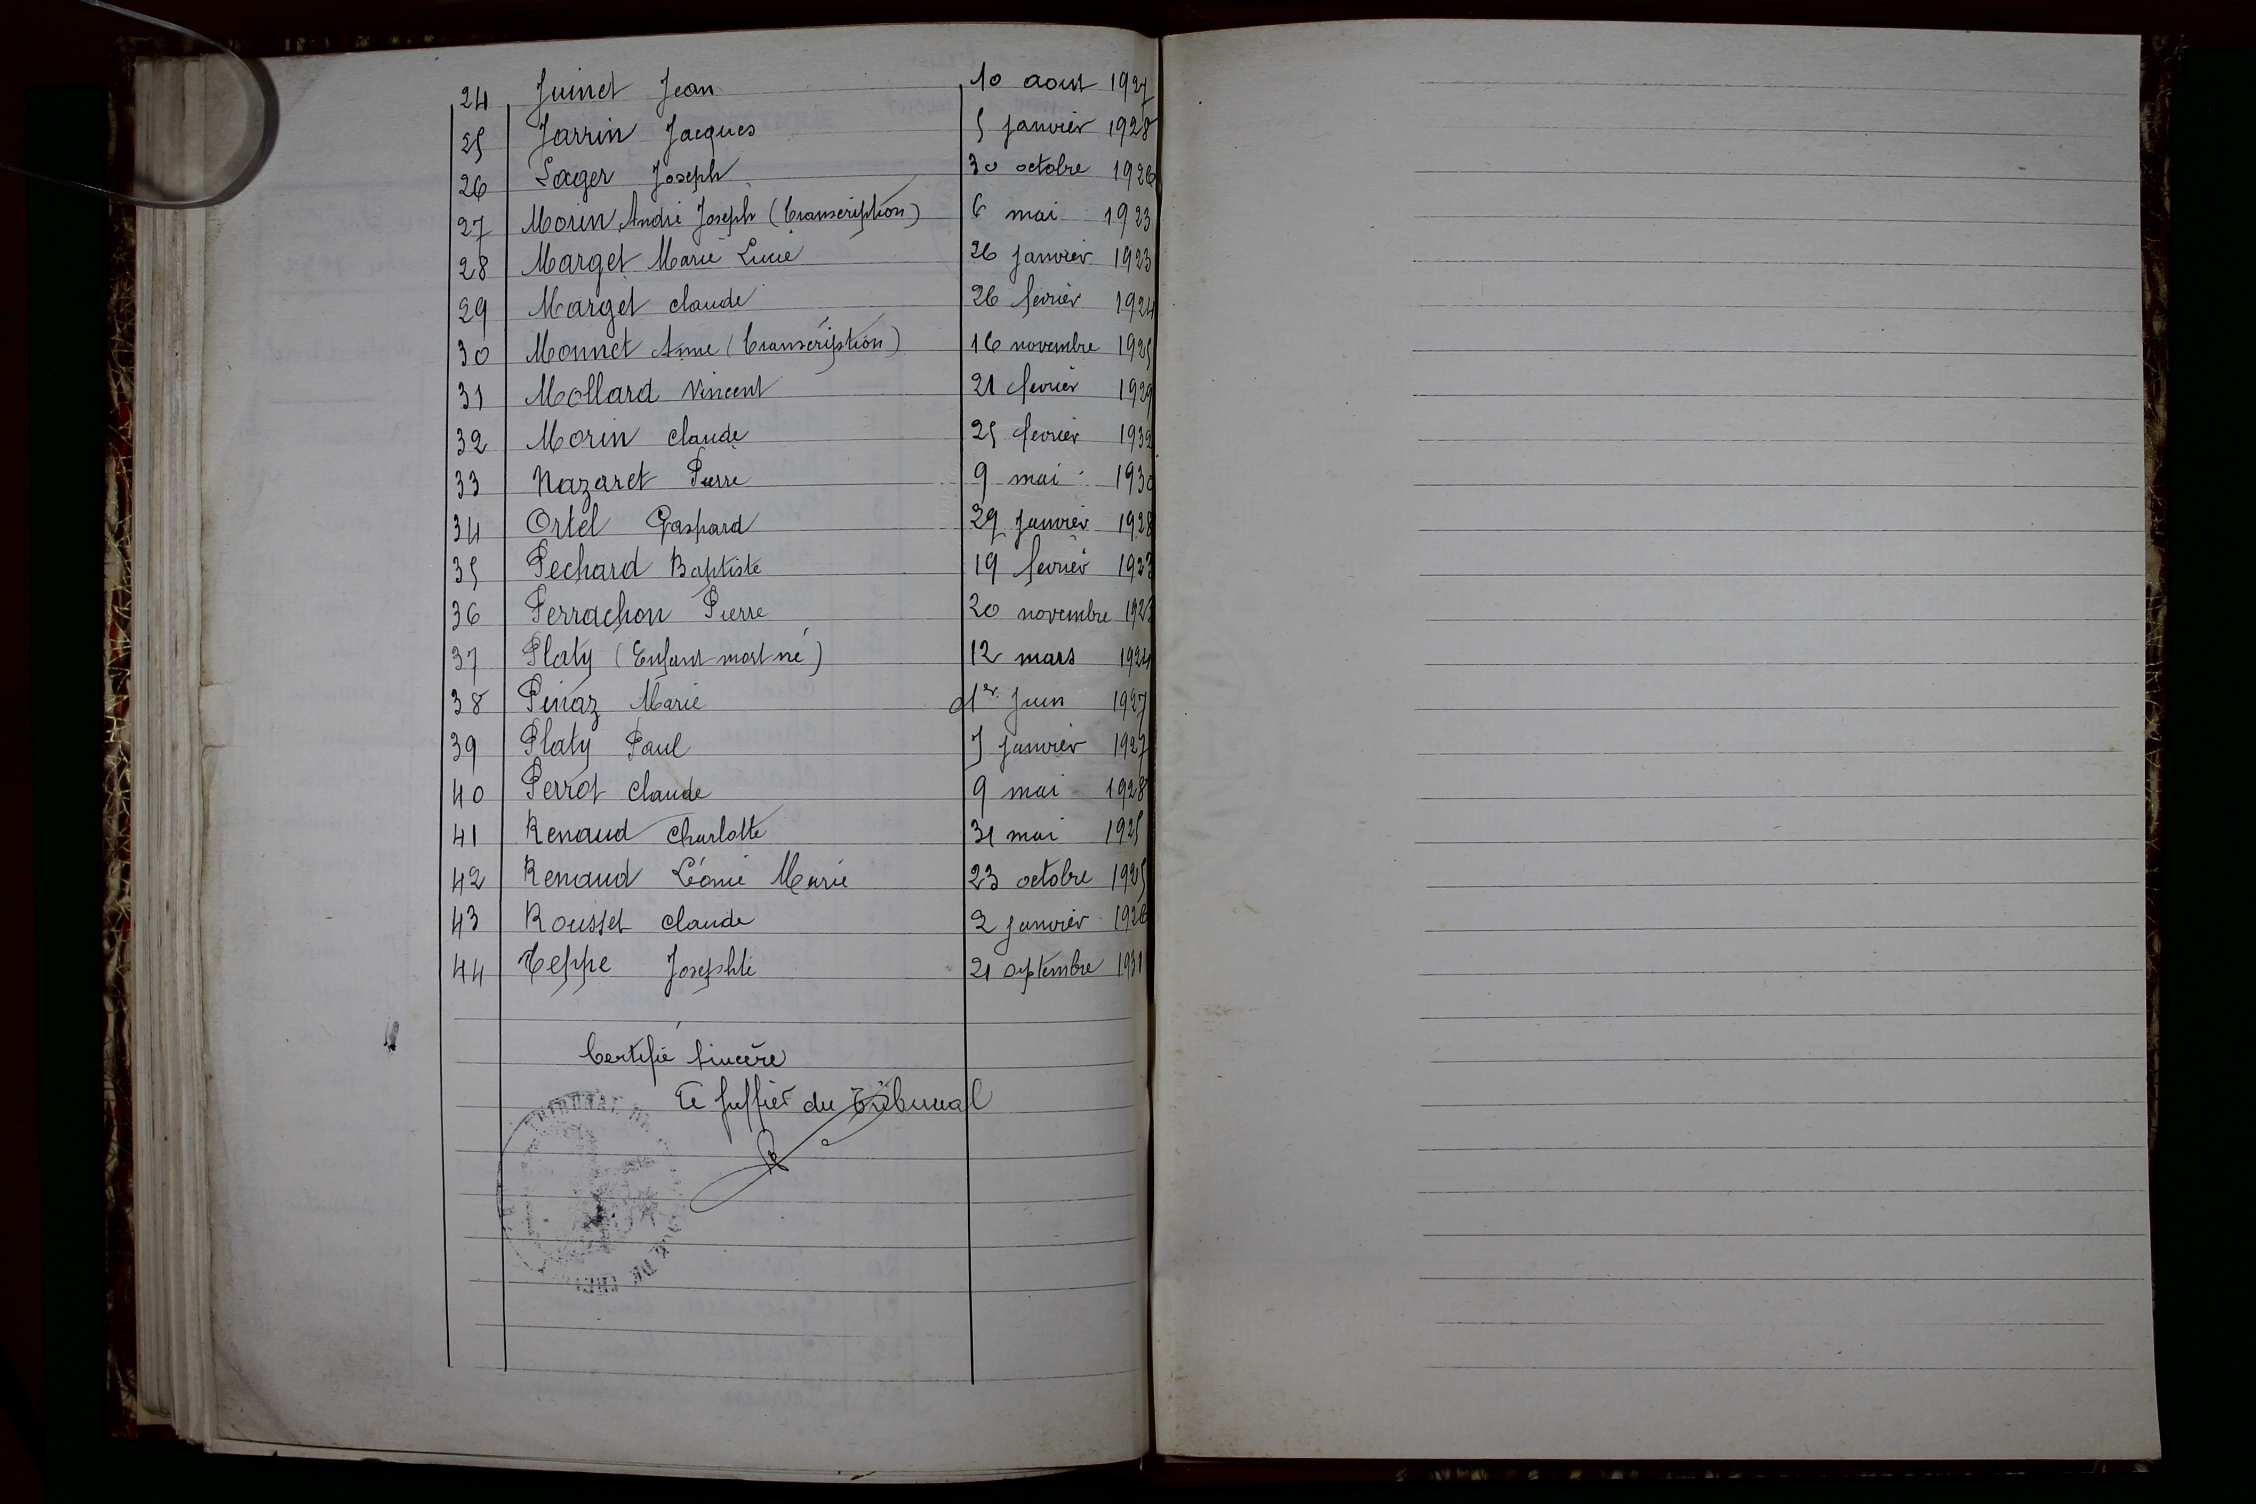 24 Juinet Jean 10 aout 1927
25 Jarrin Jacques 5 janvier 1928
26 Lager Joseph 30 octobre 1926
27 Morin André Joseph (Transcription) 6 mai 1923
28 Marget Marie Lucie 26 janvier 1923
29 Marget claude 26 fevrier 1924
30 Monnet Anne (Transcription) 16 novembre 1925
31 Mollard Vincent 21 fevrier 1929
32 Morin claude 25 fevrier 1932
33 Nazaret Pierre 9 mai 1930
34 Ortel Gaspard 29 janvier 1928
35 Pechard Baptiste 19 fevrier 1923
36 Perrachon Pierre 20 novembre 1923
37 Platy (Enfant mort né) 12 mars 1924
38 Pinaz Marie 1er Juin 1927
39 Platy Paul janvier 1927
40 Perrot claude 9 mai 1928
41 Renaud charlotte 31 mai 1925
42 Renaud Léonie Marie 23 octobre 1925
43 Rousset claude 2 janvier 1926
44 Teppe Josephte 21 septembre 1931
Certifié sincère
Le Greffier du Tribunal
TRIBUNAL DE